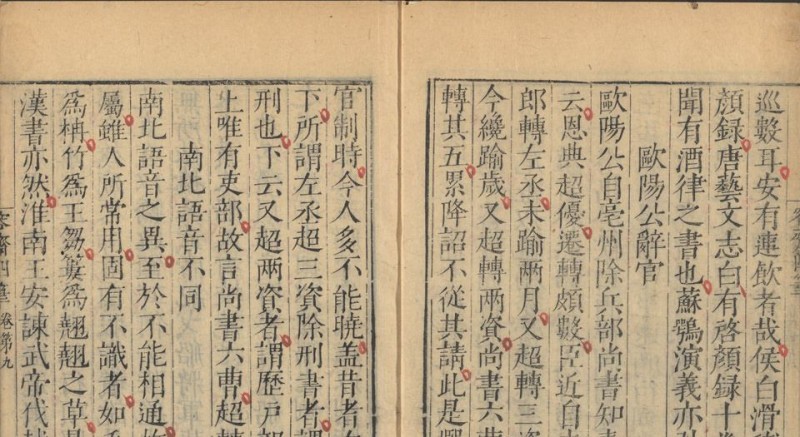 巡數耳安有連飲者哉侯白滑
顏錄唐藝文志白有啓顏錄十
聞有酒律之書也蘇鶚演義亦
歐陽公辭官
歐陽公自亳州除兵部尚書知青
云恩典超優遷轉頗數臣近自
郎轉左丞未踰兩月又超轉三資
今纔踰歲又超轉兩資尚書六曹
轉其五累降詔不從其請此是熙
官制時今人多不能曉蓋昔者
下所謂左丞超三資除刑書者謂
刑也下云又超兩資者謂歷戶部
上唯有吏部故言尚書六曹超轉
南北語音不同
南北語音之異至於不能相通故
屬雖人所常用固有不識者如
為柟竹為王芻蔞為翹翹之草
漢書亦然淮南王安諫武帝伐越
容齋四筆 卷第九